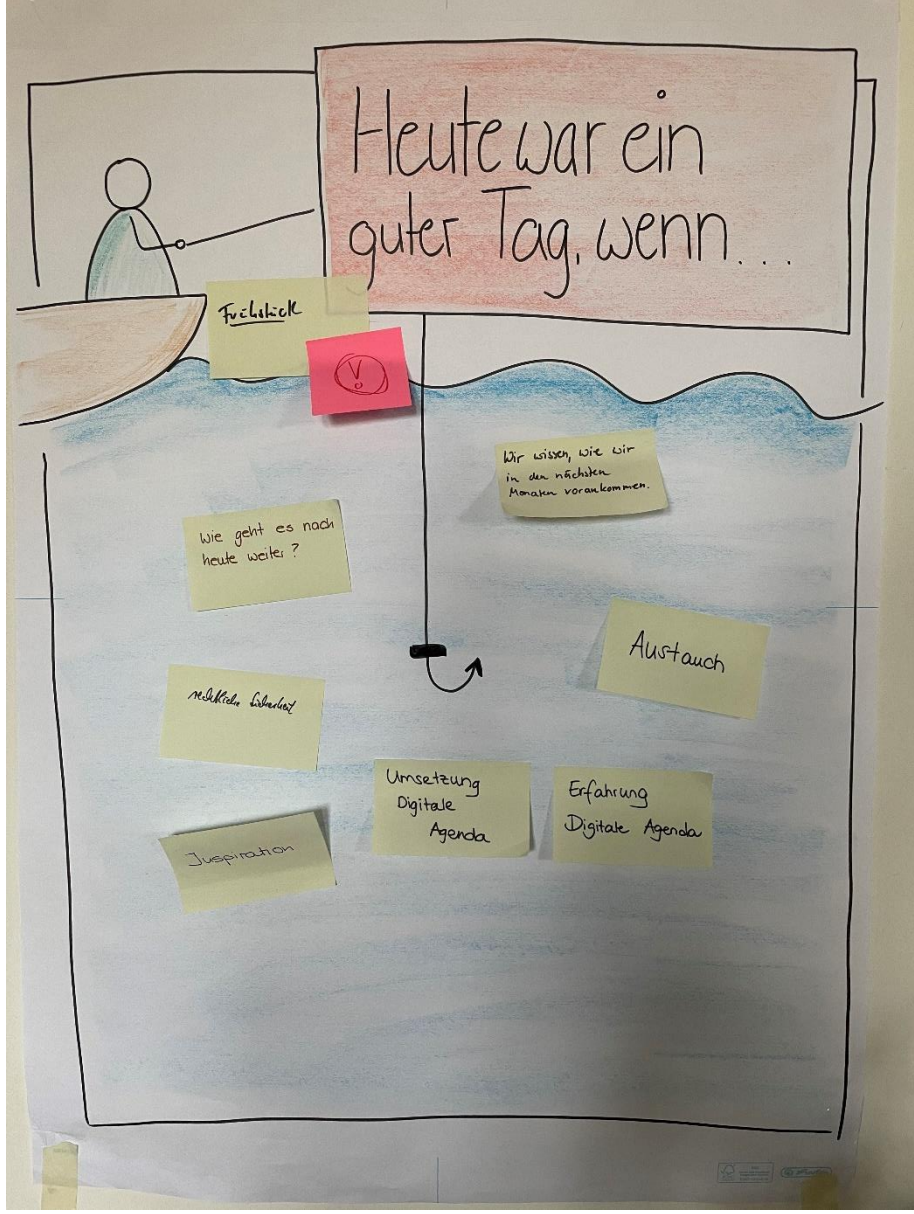 Heute war ein
guter Tag, wenn...
Frühstück
!
Wir wissen, wie wir
in den nächsten
Monaten vorankommen.
Wie geht es nach
heute weiter?
Austauch
rechtliche Sicherheit
Umsetzung
Digitale
Agenda
Erfahrung
Digitale Agenda
Inspiration